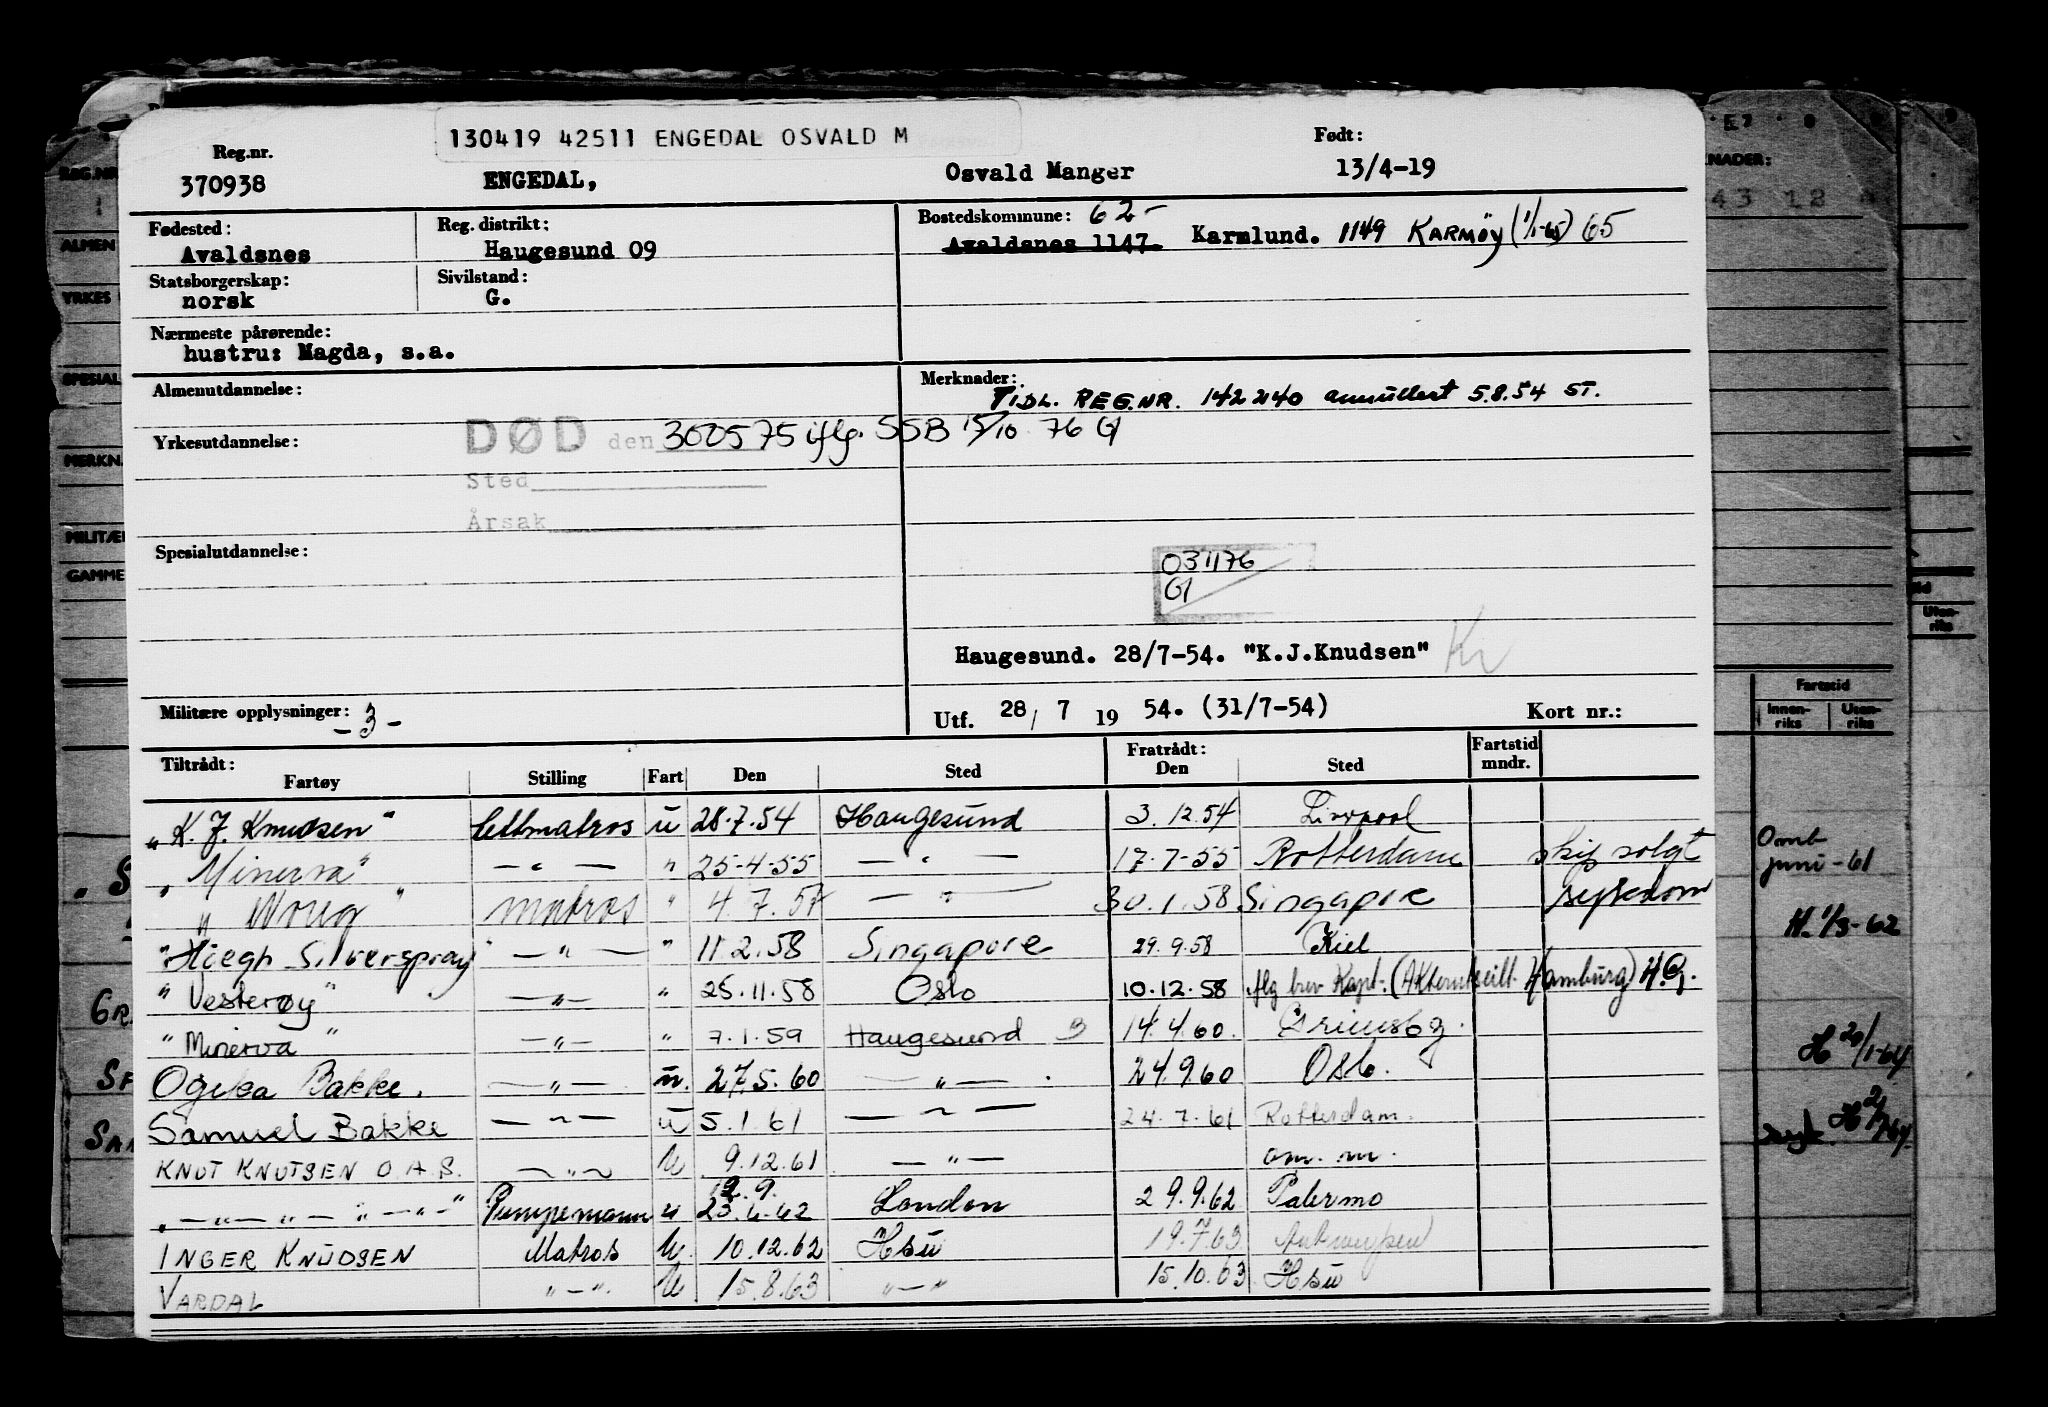 130419 42511 ENGEDAL OSVALD M
Reg.nr. Født:
370938 ENGEDAL, Osvald Manger 13/4-19
Fødested: Reg. distrikt: Bostedskommune: 62-
Avaldsnes Haugesund 09 Avaldsnes 1147. Karmlund. 1149 KARMØY (1/1-65) 65
Statsborgerskap: Sivilstand:
norsk G.
Nærmeste pårørende:
hustru: Magda, s.a.
Almenutdannelse: Merknader:
TIDL. REG.NR. 142240 annullert 5.8.54 ST.
Yrkesutdannelse: DØD den 300575 iflg. SSB 15/10 76 G
Sted
Årsak
Spesialutdannelse:
031176
G
Haugesund. 28/7-54. "K.J.Knudsen" Kr
Militære opplysninger: - 3 - Utf. 28/ 7 19 54. (31/7-54) Kort nr.:
Tiltrådt: Fratrådt: Fartstid
Fartøy Stilling Fart Den Sted Den Sted mndr.
"K. J. Knudsen" lettmatros u 28.7.54 Haugesund 3.12.54 Liverpool
"Minerva" — " — " 25-4-55 — " — 17-7-55 Rotterdam skip solgt
" " matros " 4.7.57 — " — 30.1.58 Singapore sykdom
"Høegh Silverspray" — " — " 11.2.58 Singapore 29.9.58 Kiel
"Vesterøy" — " — " 25.11.58 Oslo 10.12.58 iflg brev Kapt. (Akterutseilt Hamburg) H.G.
"Minerva" — " — " 7.1.59 Haugesund 3 14.4.60. Grimsby.
Ogeka Bakke. — " — u. 27.5.60 — " — . 24.9.60 Oslo.
Samuel Bakke — " — u 5.1.61 — " — 24.7.61 Rotterdam.
KNUT KNUTSEN O.A.S. — " — U 9.12.61 — " — om. m.
" — " — " — " — " — " Pumpemann u 23.4.62 12.9. London 29.9.62 Palermo
INGER KNUDSEN Matros U. 10.12.62 Hsu 19.7.63 Antwerpen
VARDAL " — ". U 15.8.63 " — " 15.10.63 Hsu
REG.NR
ALMEN
YRKES
SPESIAL
MERKNA
MILITÆR
GAMME
KNADER:
43 12
Fartstid
Innen-riks Uten-riks
Omb
juni -61
H. 1/3-62
H 20/1-64